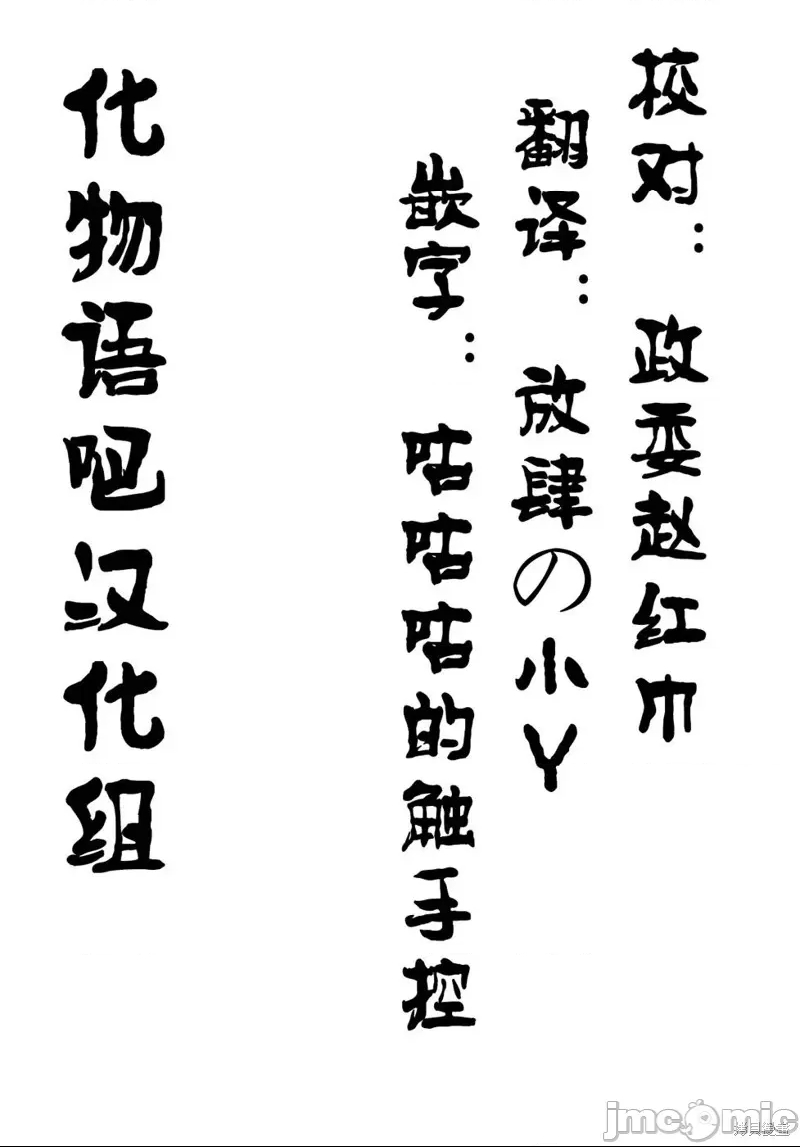 校对：政委赵红巾
翻译：放肆の小丫
嵌字：咕咕咕的触手控
化物语吧汉化组
jmcomic
拷貝漫畫